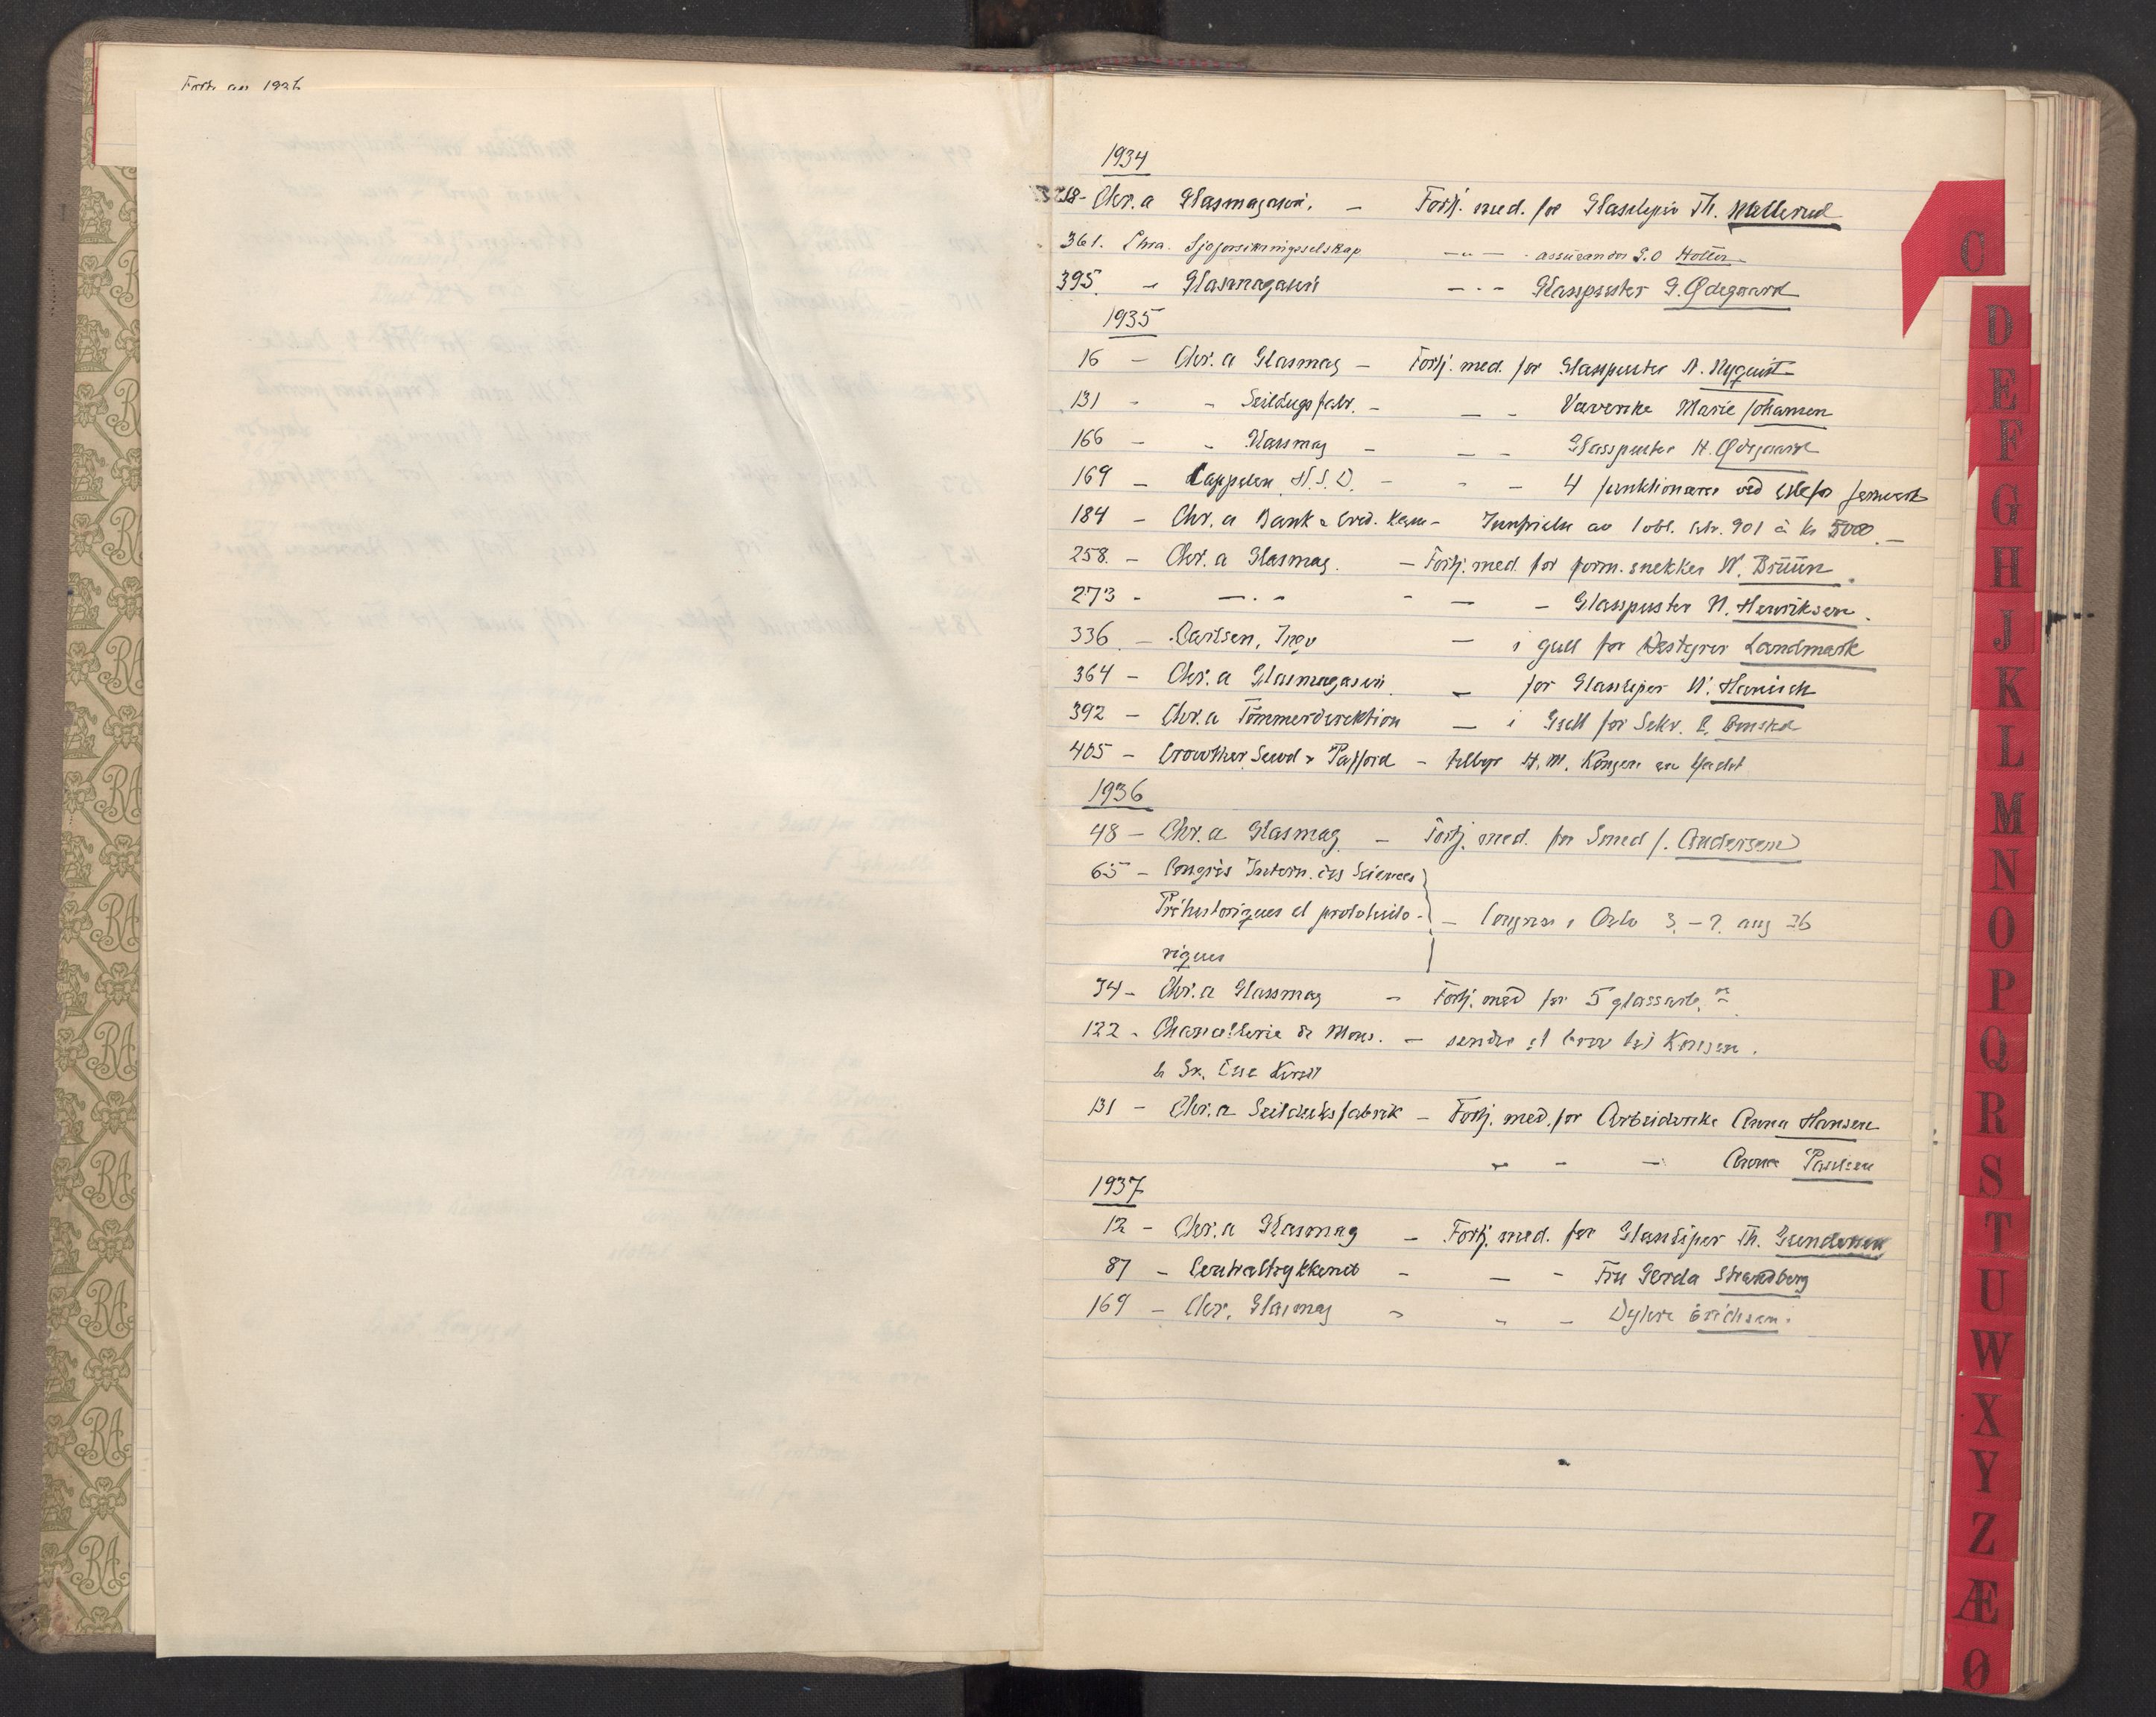 Forts. av 1936
1934
218- Chr.a Glasmagasin. — Fortj. med. for Glassliper Th. Mellerud
361. Chra. Sjøforsikringsselskap —"— assurandør S.O Holter
395. " Glasmagasin —"— Glasspuster G. Ødegaard
1935
16 — Chr.a Glasmag — Fortj. med. for Glasspuster A. Nyquist
131 - " Seildugsfabr. - — - Væverske Marie Johansen
166 — " Glassmag - — - Glasspuster H. Ødegaard
169 — Cappelen, H.S.D. - - — 4 funktionærer ved Ulefos Jernverk
184 — Chr.a Bank & Cred. Kasse - Innfrielse av 1 obl. litr. 901 à kr 5000.—
258. — Chr.a Glasmag. — Fortj. med. for form. snekker W. Brüün.
273 - —"— - — - Glasspuster N. Henriksen.
336 — Carlsen, Ingv — i gull for Bestyrer Landmark
364 — Chr.a Glasmagasin — for Glassliper W. Hanisch
392 — Chr.a Tömmerdirektion — i Gull for Sekr. E. Onstad
405 — Crowther Seud & Pafford — tilbyr H.M. Kongen en Yacht
1936
48 — Chr.a Glasmag — Fortj. med. for Smed J. Andersen
65 — Congrès Intern. des Sciences
Préhistoriques et protohisto- — Congress i Oslo 3.—9. aug 36
riques
74 — Chr.a Glassmag — Fortj. med for 5 glassarb.
122 - Chancellerie de Mons. — sender et brev til Kongen.
le Gr. Duc Kyrill
131 — Chr.a Seilduksfabrik — Fortj. med. for Arbeiderske Anna Hansen
" - — Anna Paulsen
1937
12 — Chr.a Glasmag — Fortj. med. for Glassliper Th. Gundersen
87 — Centraltrykkeriet - — - Fru Gerda Strandberg
169 — Chr. Glasmag - - — Erichsen.
C
D
E
F
G
H
J
K
L
M
N
O
P
Q
R
S
T
U
W
X
Y
Z
Æ
Ø